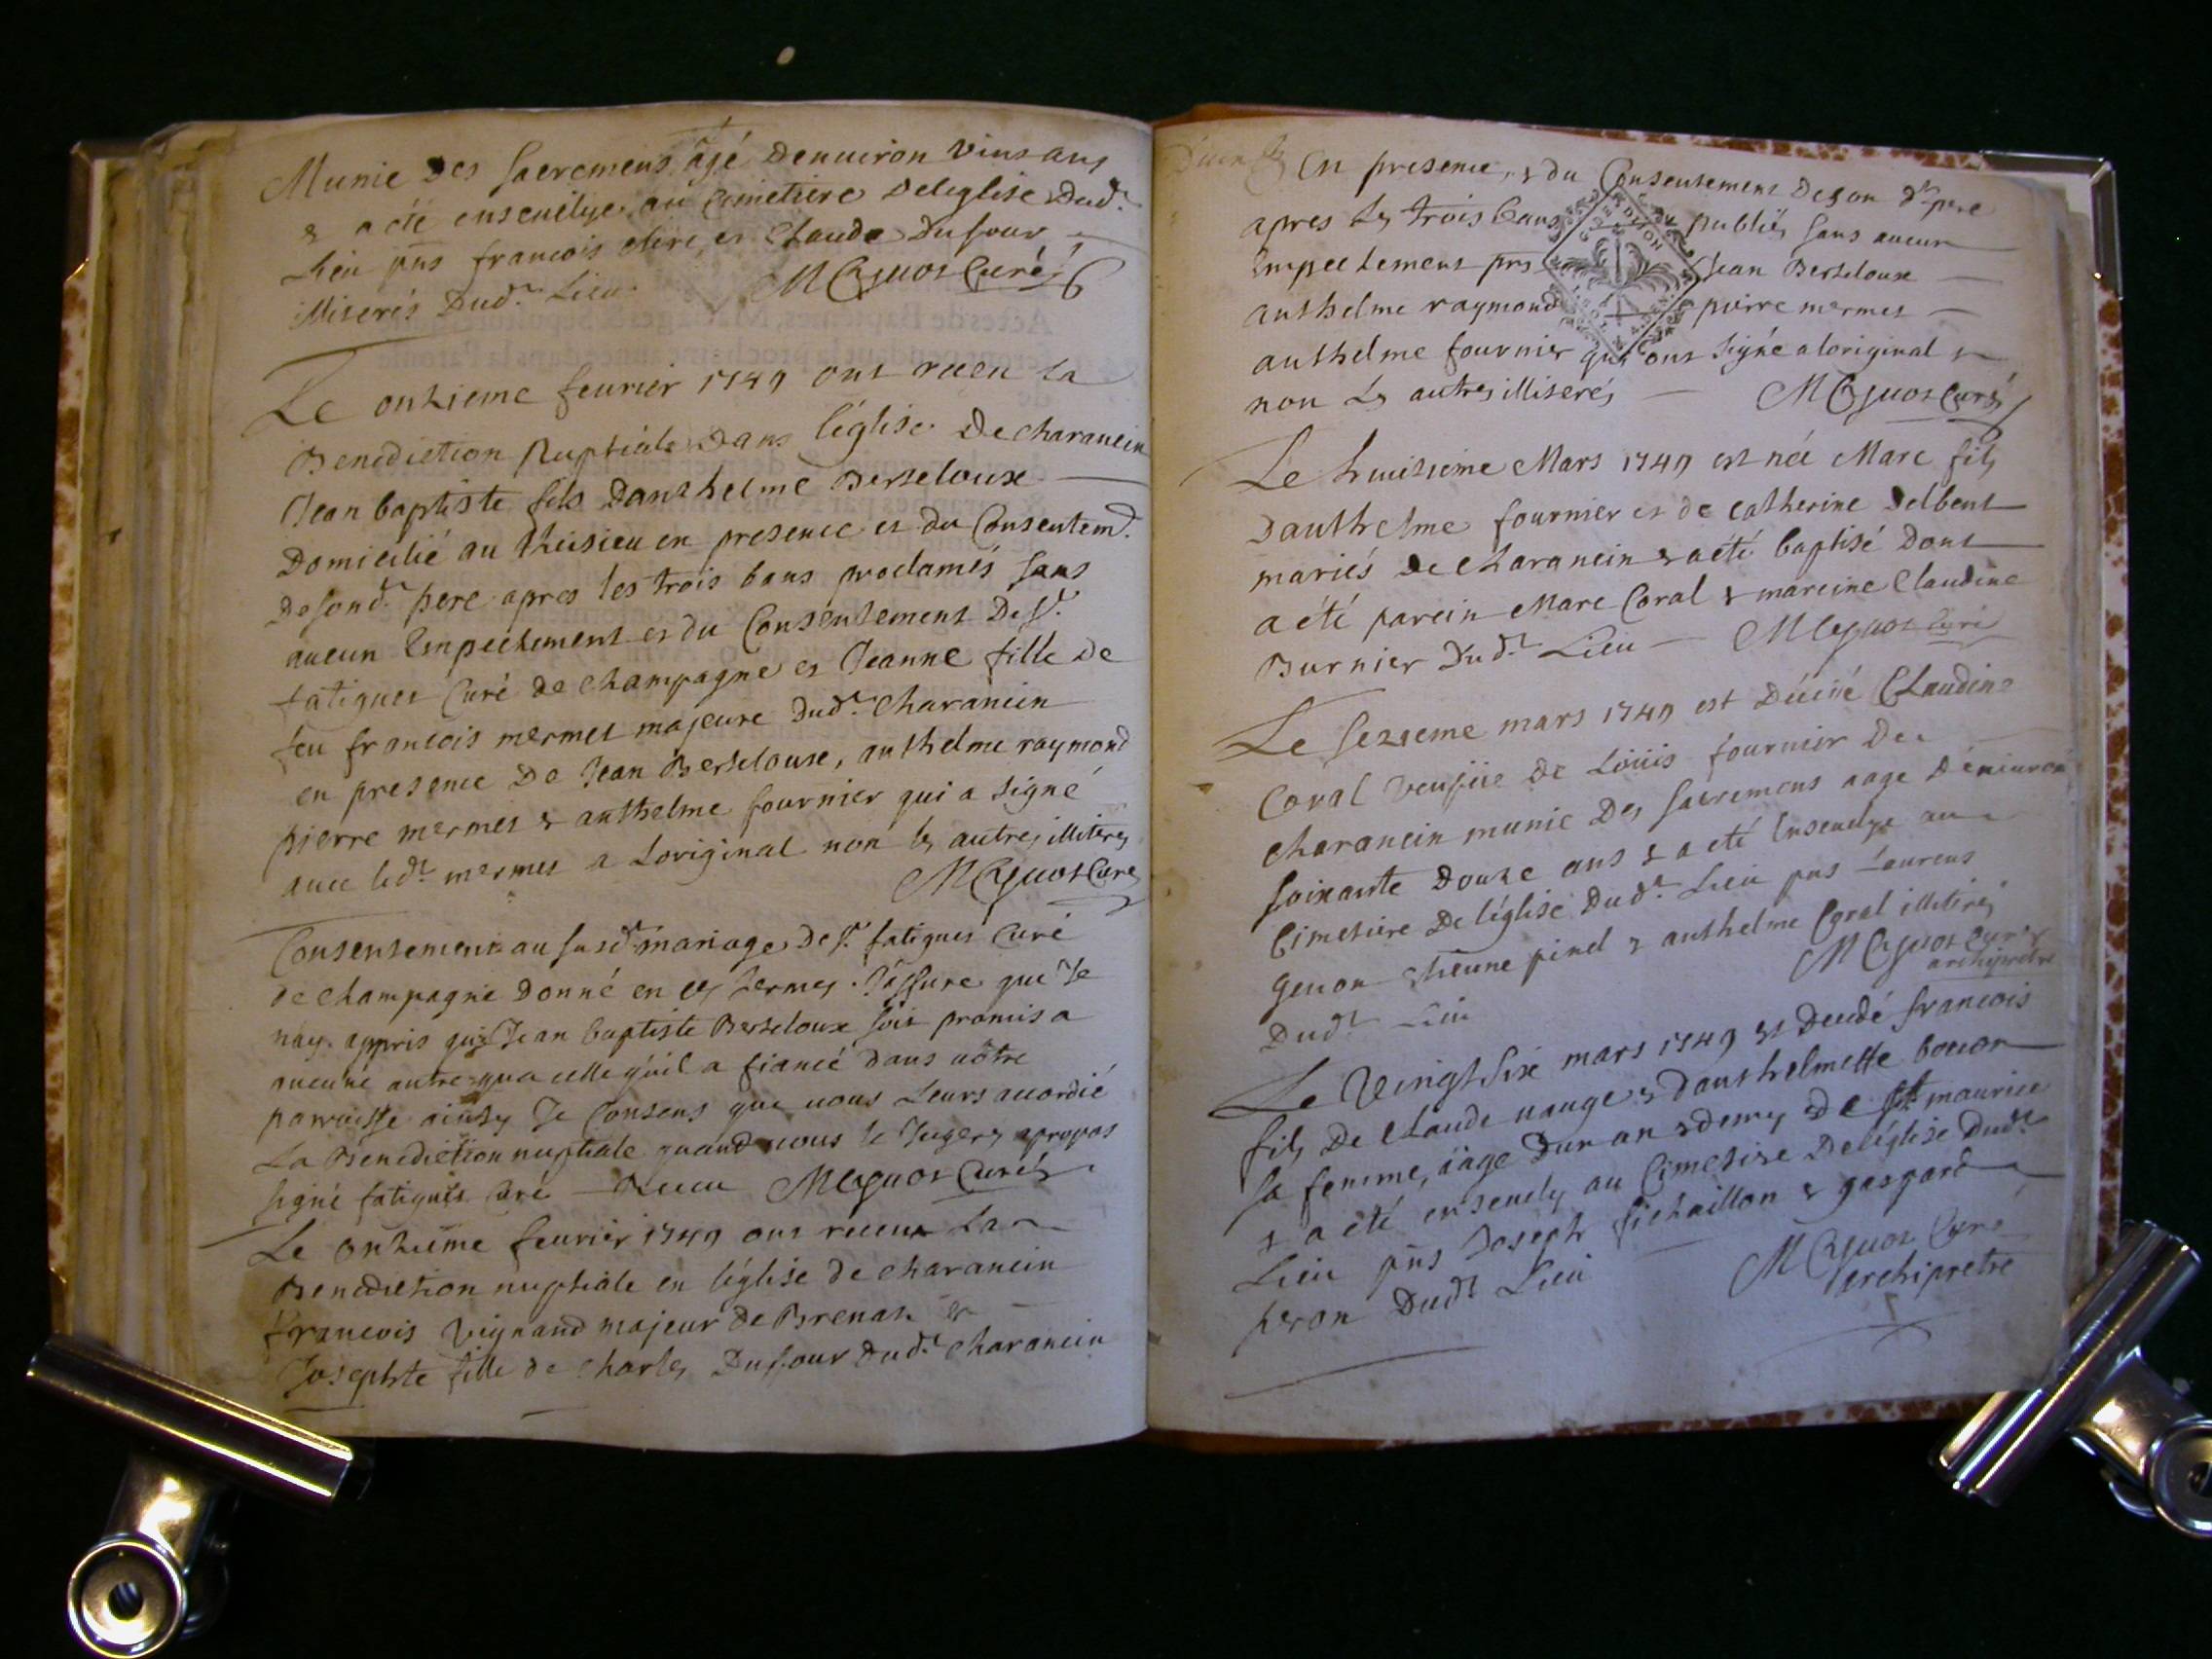 Munie Des sacremens agé Denuiron vins ans
& a été enseuelye au Cimetiere Deleglise Dud.t
Lieu pns francois Mire et Claude Dufour
illiserés Dud.t Lieu. M Cyuot Curé
Le onzieme feurier 1749 ont receu La
Benediction Nuptiale Dans l'églisse De charancin
Jean baptiste fils Danthelme Berteloux
Domicilié au Cheisieu en presence et du Consentem.t
Deson d.t pere apres les trois bans proclamés sans
aucun Empechement et du Consentement De s.r
fatigues Curé de champagne et Jeanne fille de
feu francois mermet majeure Dud.t charancin
en presence De Jean Berteloux, anthelme raymond
pierre mermet & anthelme fournier qui a signé
auec led.t mermet a Loriginal non les autres illiteres
M Cyuot Curé
Consentement au susd.t mariage de s.r fatigues Curé
de champagne Donné en ces termes. J'assure que Je
nay appris que Jean baptiste Berteloux soit promis a
aucune autre qua celle qúil a fiancé dans uôtre
parroisse ainsy Je Consens que uous Leurs accordié
La Benediction nuptiale quand uous le Jugerez apropos
signé fatigues Curé Receu M Cyuot Curé
Le onzieme feurier 1749 ont receu La
Benediction nuptiale en léglise de charancin
francois Vignand majeur de Brenas &
Josephte fille de charles Dufour dud.t charancin
En presence, & du Consentement Deson d.t pere
apres Les trois bans publiés sans aucun
Empechement pns Jean Berteloux
anthelme raymond pierre mermet
anthelme fournier qui ont signé a loriginal &
non Les autres illiserés M Cyuot Curé
Le huitieme Mars 1749 est née Marc fils
Danthelme fournier et de Catherine Delbent
mariés de charancin & a été baptisé Dont
a été parein Marc Coral & mareine Claudine
Burnier Dud.t Lieu M Cyuot Curé
Le sezieme mars 1749 est Décéé Claudine
Coral veufiie de Loüis fournier De
charancin munie Des sacremens aage Deniuron
soixante Douze ans & a eté Enseuelye au
Cimetiere De léglise Dud.t Lieu pns Laurens
Genon Etienne pinel & anthelme Coral illiterés
Dud.t Lieu M Cyuot Curé
archiprêtre
Le Vingt six mars 1749 est Decedé francois
fils De Claude nauge & Danthelmette bouuon
sa femme, aage Dun an & demy De st maurice
& a été enseuely au Cimetiere De léglise Dud.t
Lieu pns Joseph fichaillon & gaspard
peron Dud.t Lieu M Cyuot Curé
archipretre